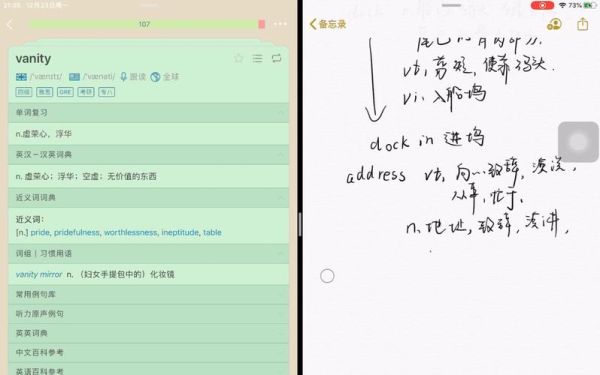 21:05 12月23日周一
107
vanity
/ˈvænɪti/ /ˈvænəti/ 跟读 全球
四级 雅思 GRE 考研 专八
单词复习
n.虚荣心，浮华
英汉－汉英词典
n. 虚荣心；浮华；空虚；无价值的东西
近义词词典
近义词：
[n.] pride, pridefulness, worthlessness, ineptitude, table
词组｜习惯用语
vanity mirror n. （妇女手提包中的）化妆镜
常用例句库
听力原声例句
英英词典
中文百科参考
英语百科参考
73%
备忘录
vt, 剪短, 使靠码头.
vi. 入船坞
dock in 进坞
address vt, 向…致辞, 演说,
从事, 忙于,
n. 地址, 致辞, 演讲,